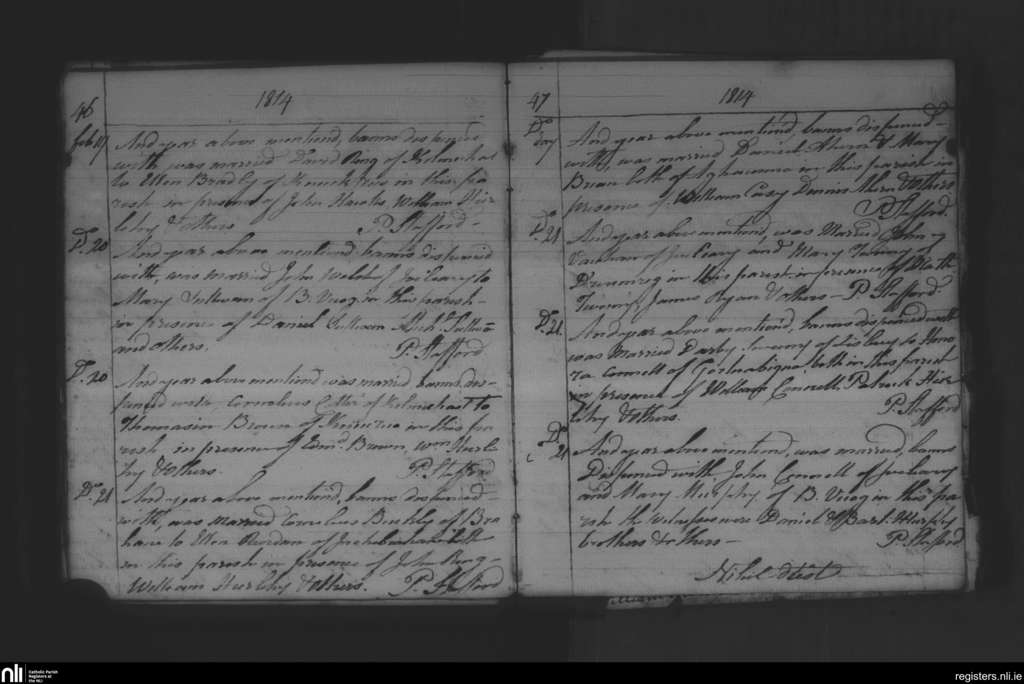 46
1814
Feb 19
And year above mentiond, banns dispensed
with, was married David Ring of
to Ellen Bradly of in this pa
rish in presence of John William Hur
lehy & others P. Stafford
Do. 20
And year above mentiond banns dispensed
with, was married John of to
Mary Sullivan of B. Vuog in this parish
in presence of Daniel Sullivan Michl. Sullivan
and others.
P. Stafford
Do. 20
And year above mentiond was married banns dis
pensed with, Cornelius of to
Thomasin Brown of in this pa
rish in presence of Edmd. Brown, Wm. Hurle
hy & others. P. Stafford
Do. 21
And year above mentiond, banns dispensed
with, was married Cornelius Buckly of
to Ellen Riordan of both
in this parish in presence of John Ring
William Hurlehy & others. P. Stafford
47
1814
Do.
day
And year above mentiond, banns dispensed
with, was married Daniel Ahern & Mary
both of in this parish in
presence of William Casy Dennis Ahern & others
P. Stafford.
Do. 21
And year above mentiond, was married John
of and Mary Twomy
in this parish in presence of
Twomy, James Ryan & others P. Stafford
Do. 21.
And year above mentiond, banns dispensed with
was married Darby of to Hono
ra Connell of both in this parish
in presence of William Connell Patrick Hur
lehy & others.
P. Stafford
Do.
21
And year above mentiond, was married, banns
Dispensed with John Connell of
and Mary Murphy of B. Vuog in this pa
rish the Witnesses were Daniel & Bart. Murphy
brothers & others
P. Stafford
nli
Catholic Parish
Registers at
the NLI
registers.nli.ie